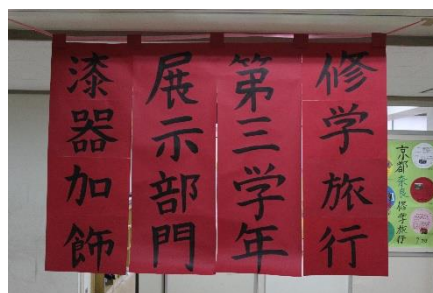 修学旅行
第三学年
展示部門
漆器加飾
京都奈良修学旅行